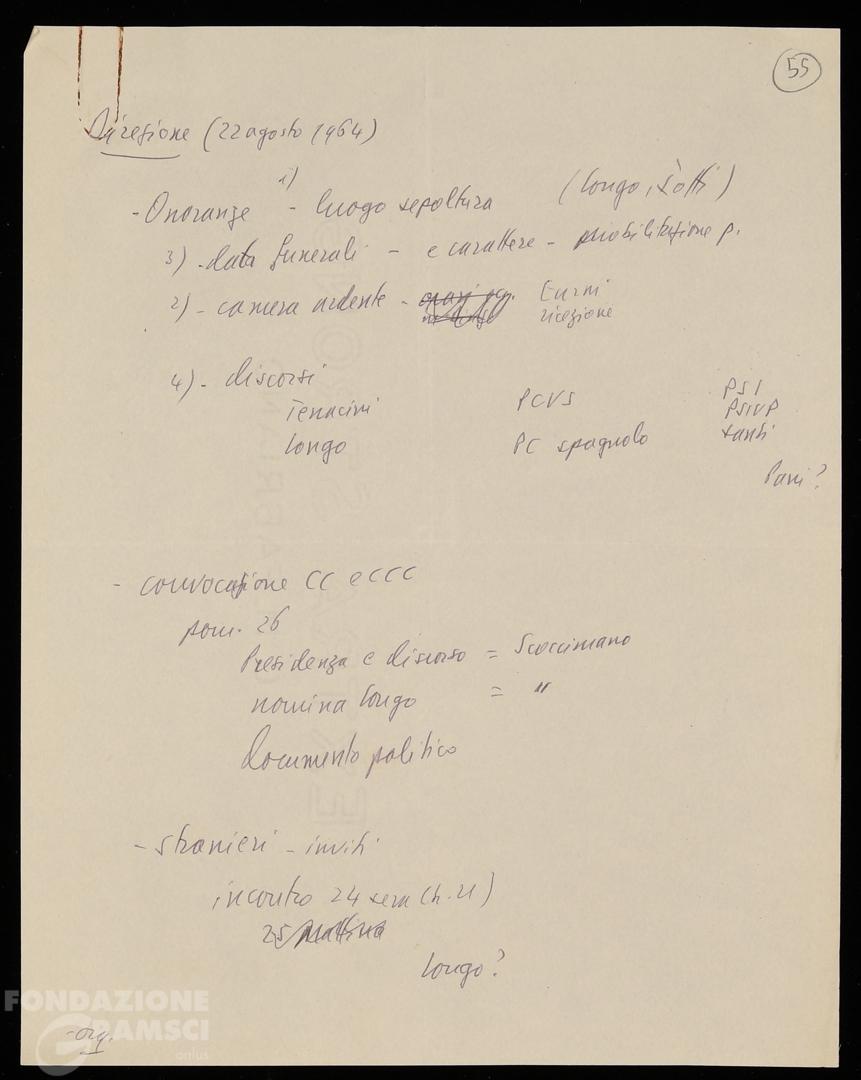 55
Direzione (22 agosto 1964)
- Onoranze 1) - luogo sepoltura (Longo,
3) - data funerali - e carattere - mobilitazione p.
2) - camera ardente - turni
ricezione
4) - discorsi
Terracini PCUS PSI
PSIUP
Longo PC spagnolo Santi
Parri?
- convocazione CC e CCC
pom. 26
Presidenza e discorso = Scoccimarro
nomina Longo = "
Documento politico
- stranieri - inviti
incontro 24 sera (h. 21)
25 mattina
Longo?
- org.
FONDAZIONE
GRAMSCI
onlus